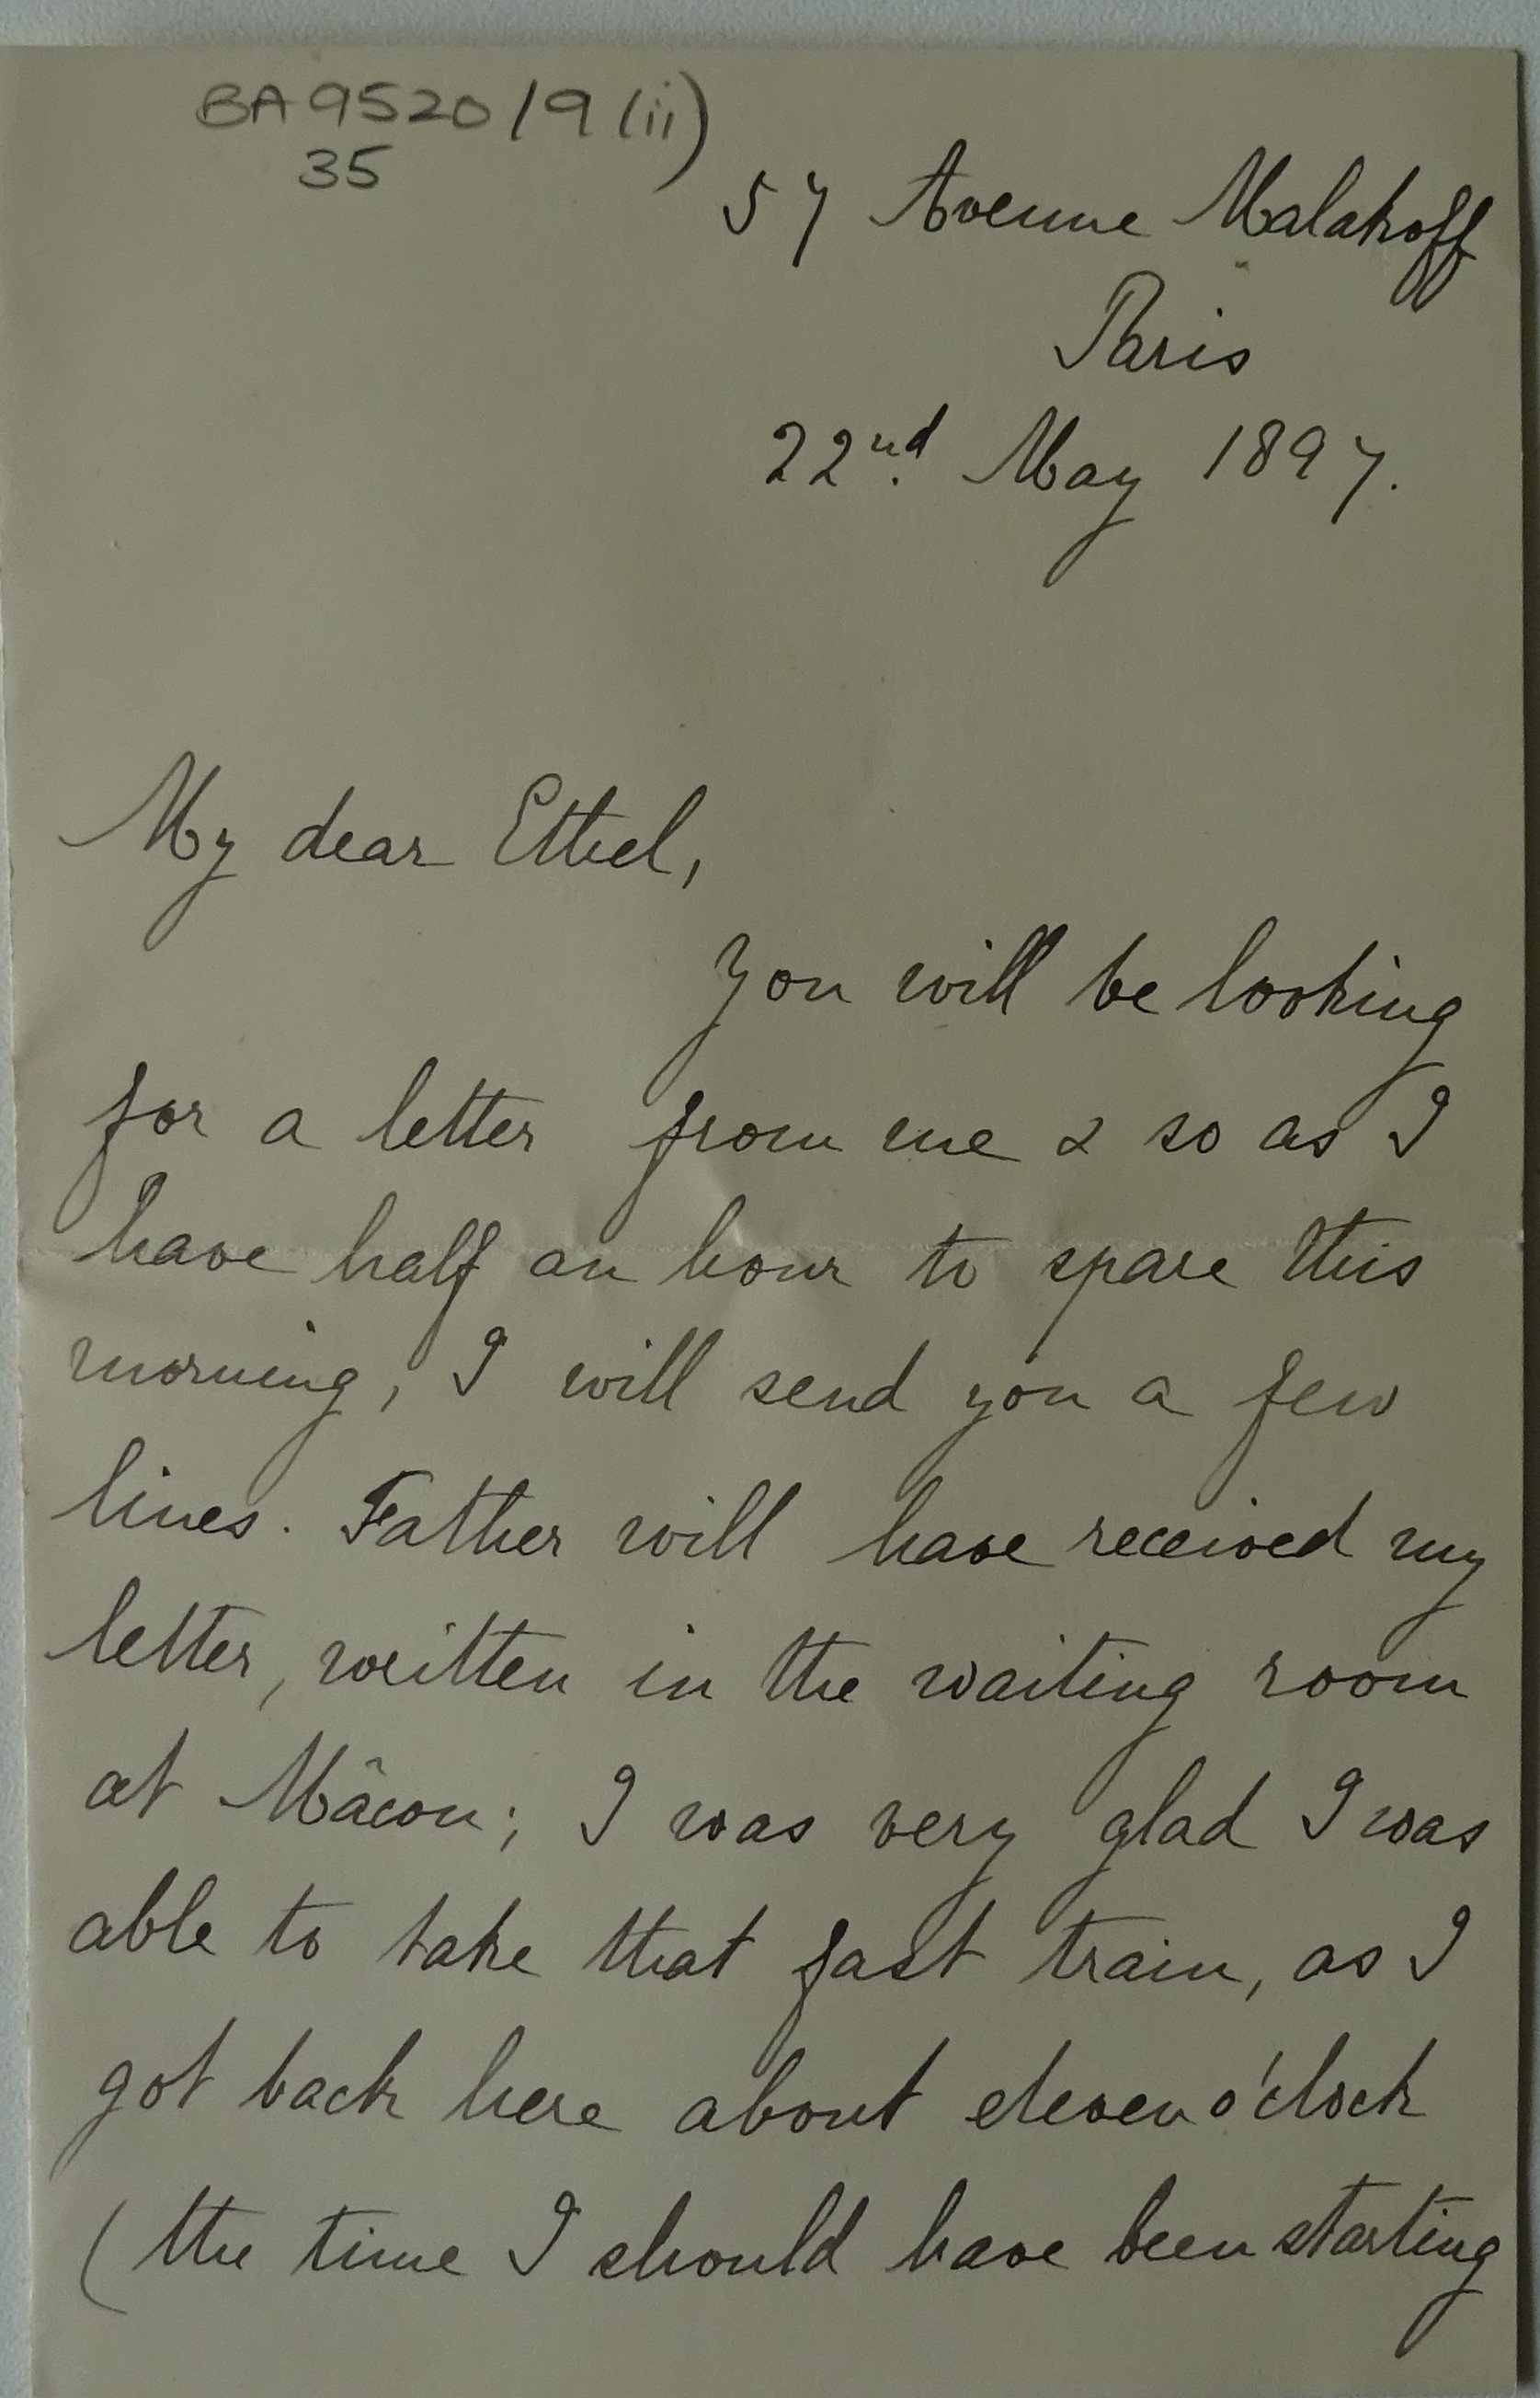 BA 9520/9(ii)
35
57 Avenue Malakoff
Paris
22nd. May 1897.
My dear Ethel,
You will be looking
for a letter from me & so as I
have half an hour to spare this
morning, I will send you a few
lines. Father will have received my
letter, written in the waiting room
at Mâcon; I was very glad I was
able to take that fast train, as I
got back here about eleven o'clock
(the time I should have been starting